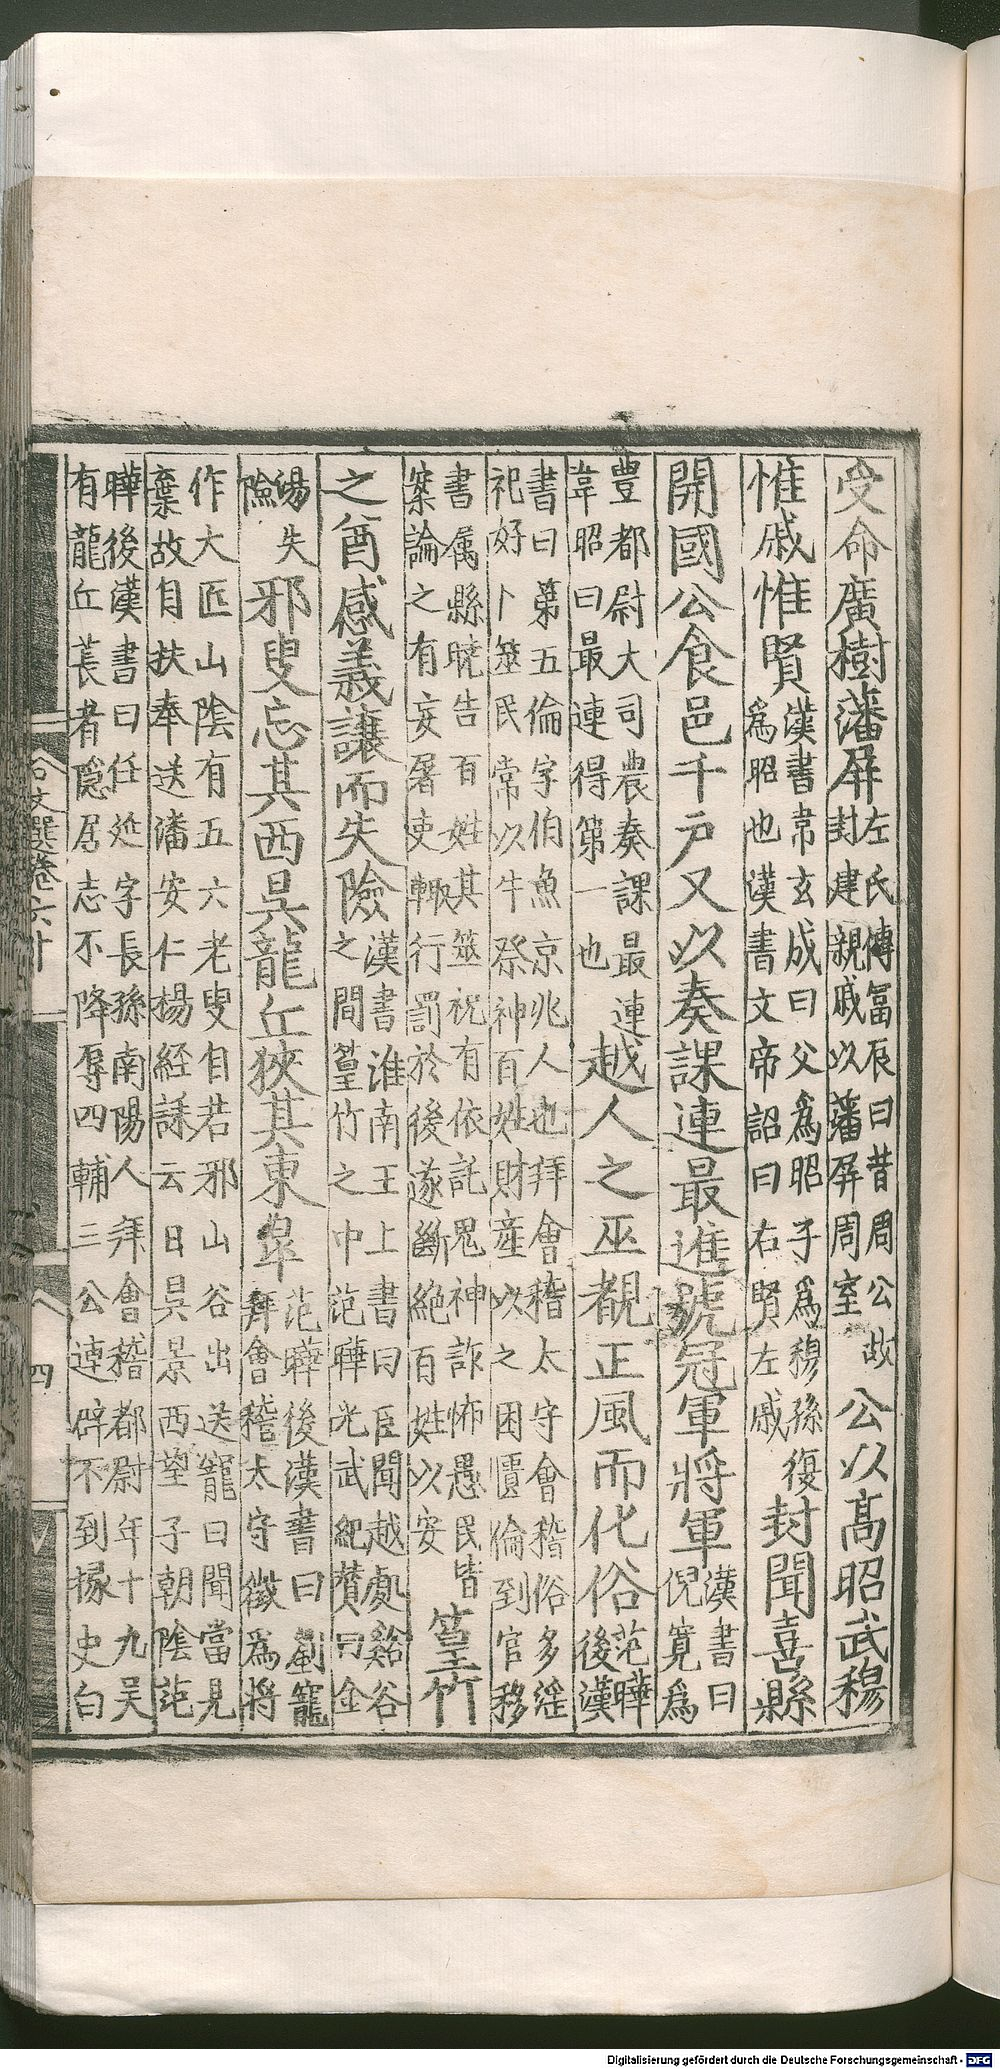 受命廣樹藩屏左氏傳富辰曰昔周公故封建親戚以藩屏周室公以高昭武穆
惟戚惟賢漢書韋玄成曰父為昭子為穆孫復為昭也漢書文帝詔曰右賢左戚封聞喜縣
開國公食邑千戸又以奏課連最進號冠軍將軍漢書曰倪寛為
豐都尉大司農奏課最連韋昭曰最連得第一也越人之巫覩正風而化俗范曄後漢
書曰第五倫字伯魚京兆人也拜會稽太守會稽俗多淫祀好卜筮民常以牛祭神百姓財產以之困匱倫到官移
書属縣曉告百姓其筮祝有依託鬼神詐怖愚民皆案論之有妄屠吏輙行罰於後遂斷絶百姓以安篁竹
之酋感義讓而失險漢書淮南王上書曰臣聞越處谿谷之間篁竹之中范曄光武紀贊曰金
湯失險邪叟忘其西吳龍丘狹其東皐范曄後漢書曰劉寵拜會稽太守徵為將
作大匠山陰有五六老叟自若邪山谷出送寵曰聞當見棄故自扶奉送潘安仁楊經誄云日吳景西望子朝陰范
曄後漢書曰任延字長孫南陽人拜會稽都尉年十九吳有龍丘萇者隱居志不降辱四輔三公連辟不到掾史白
文選卷六十
四
Digitalisierung gefördert durch die Deutsche Forschungsgemeinschaft - DFG